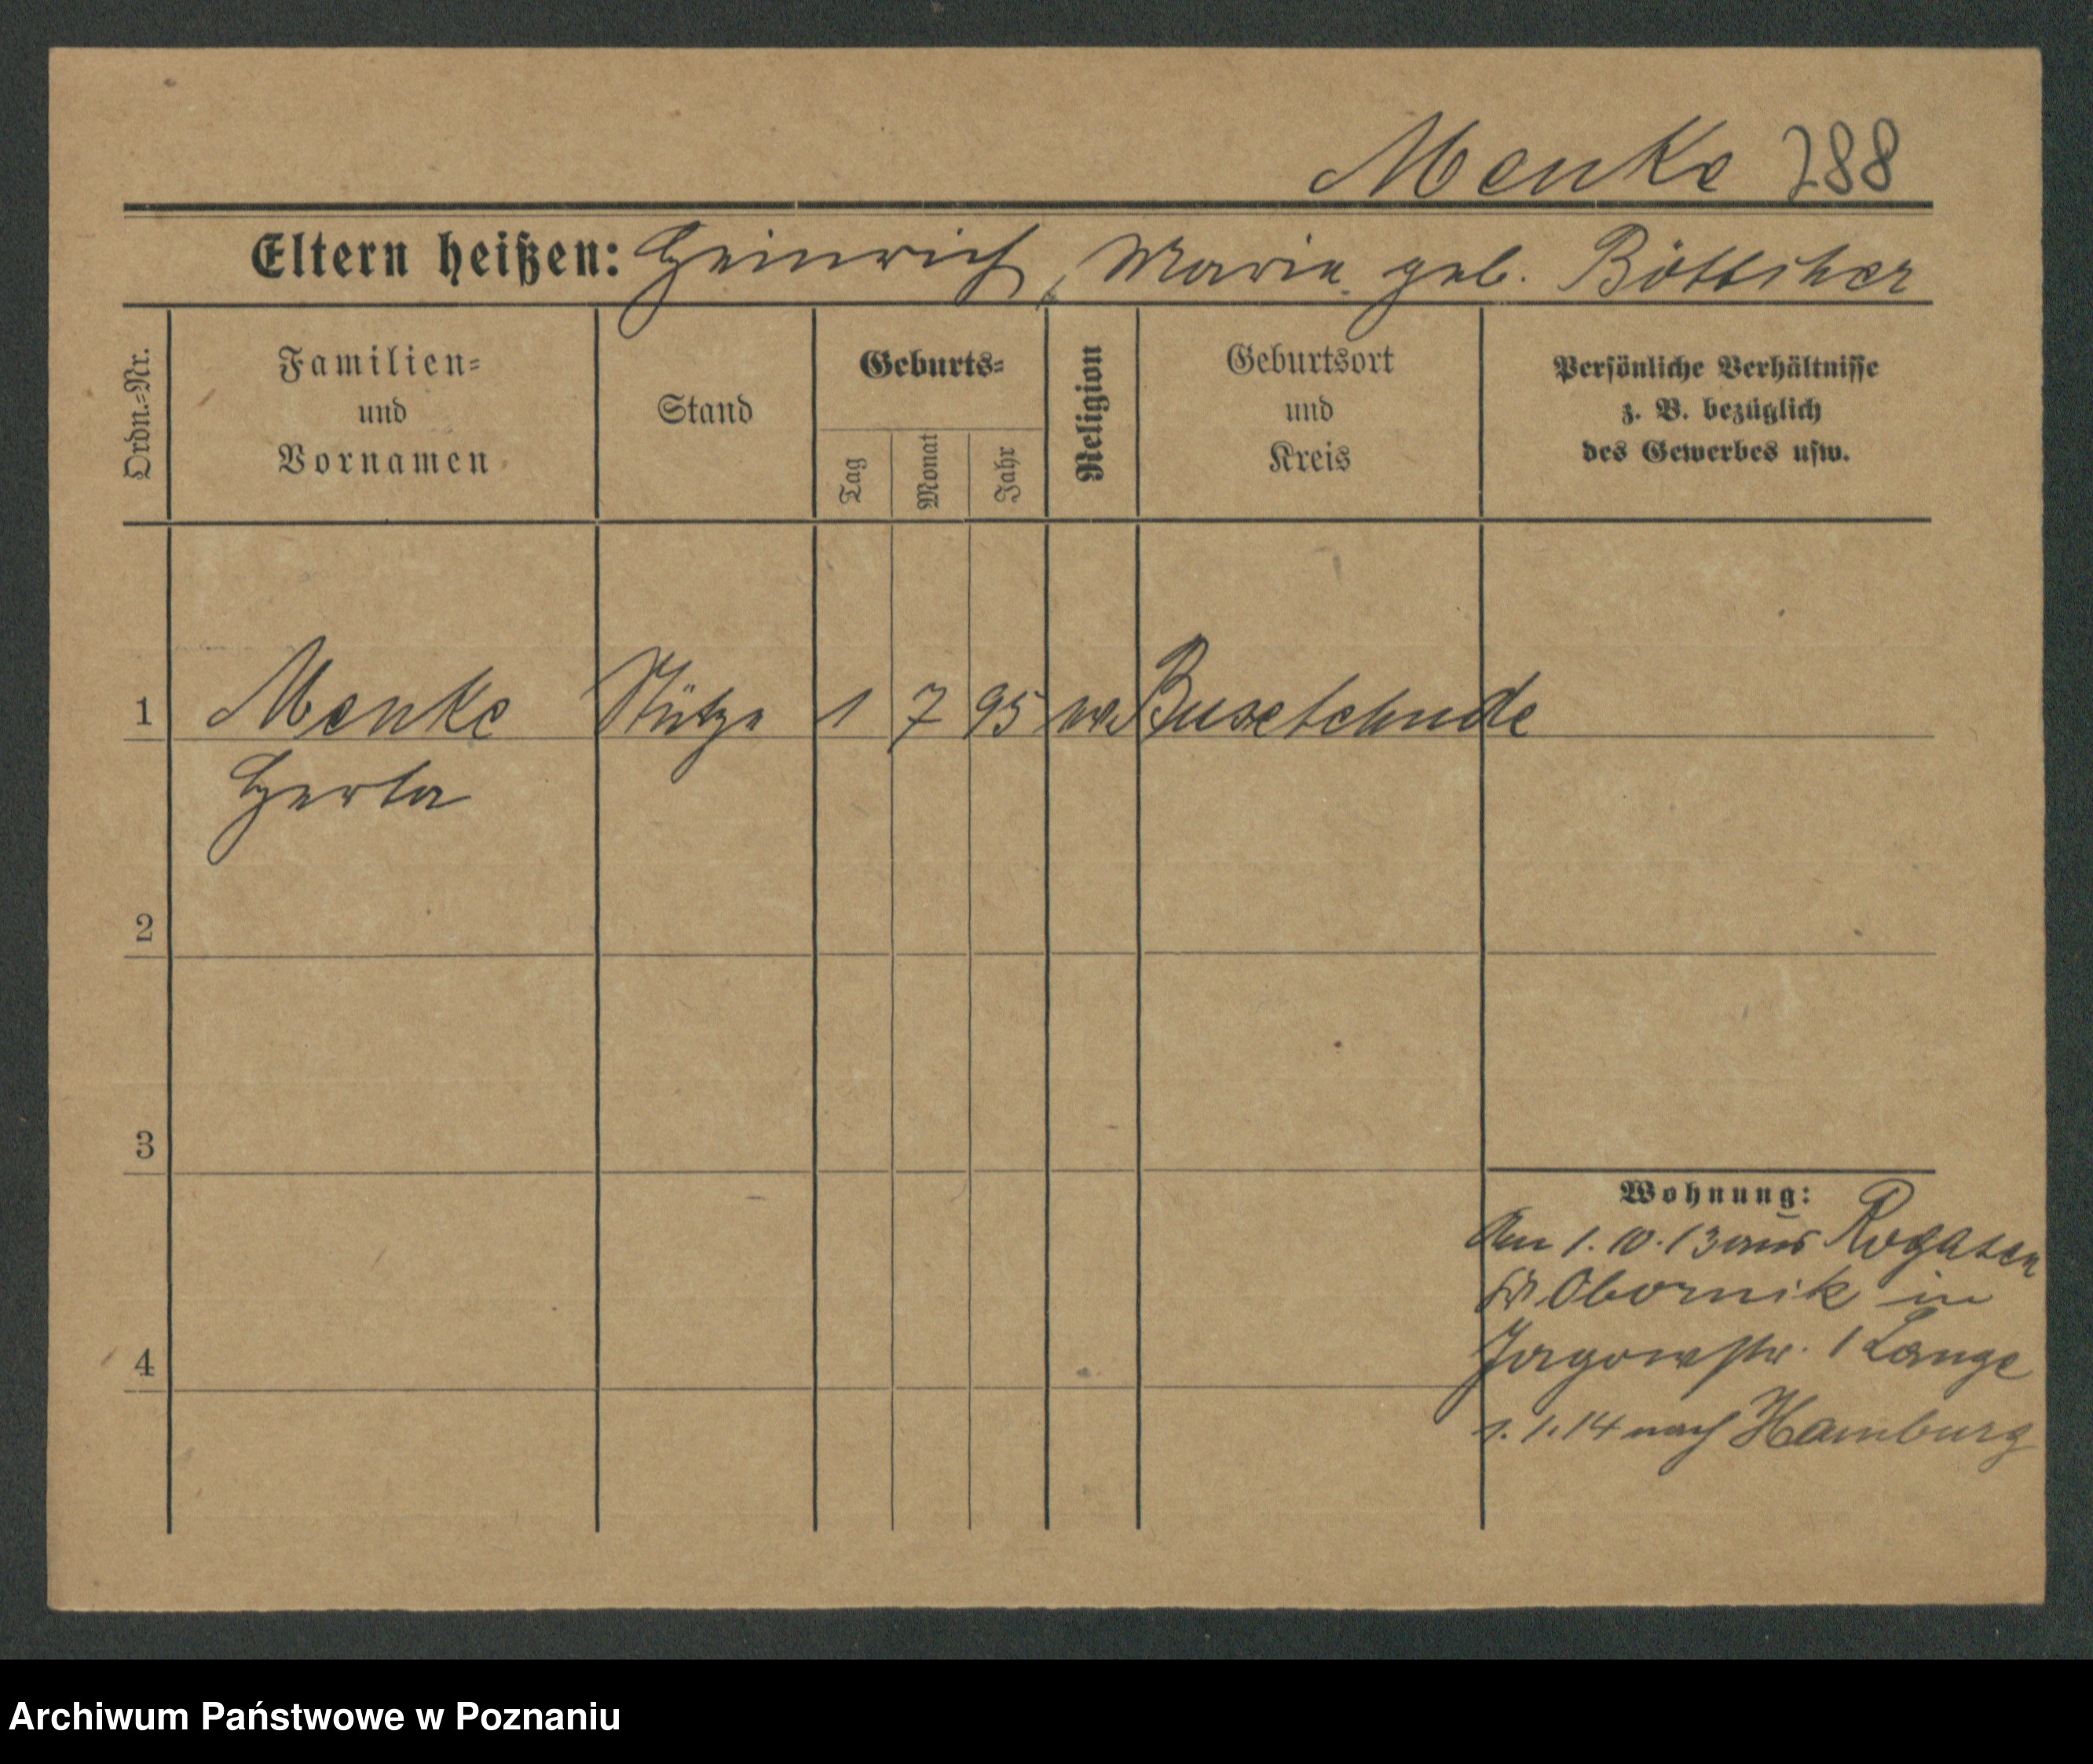 Menke 288
Eltern heißen: Heinrich, Marie geb. Böttcher
Ordn.=Nr.
Familien=
und
Vornamen
Stand
Geburts=
Tag
Monat
Jahr
Religion
Geburtsort
und
Kreis
Persönliche Verhältnisse
z. B. bezüglich
des Gewerbes usw.
1 Menke Stütze 1 7 95 ev Buxtehude
Herta
2
3
4
Wohnung:
Am 1.10.13 aus Rogasen
Kr Obornik in
Jagowstr. 1 Lange
1.1.14 nach Hamburg
Archiwum Państwowe w Poznaniu